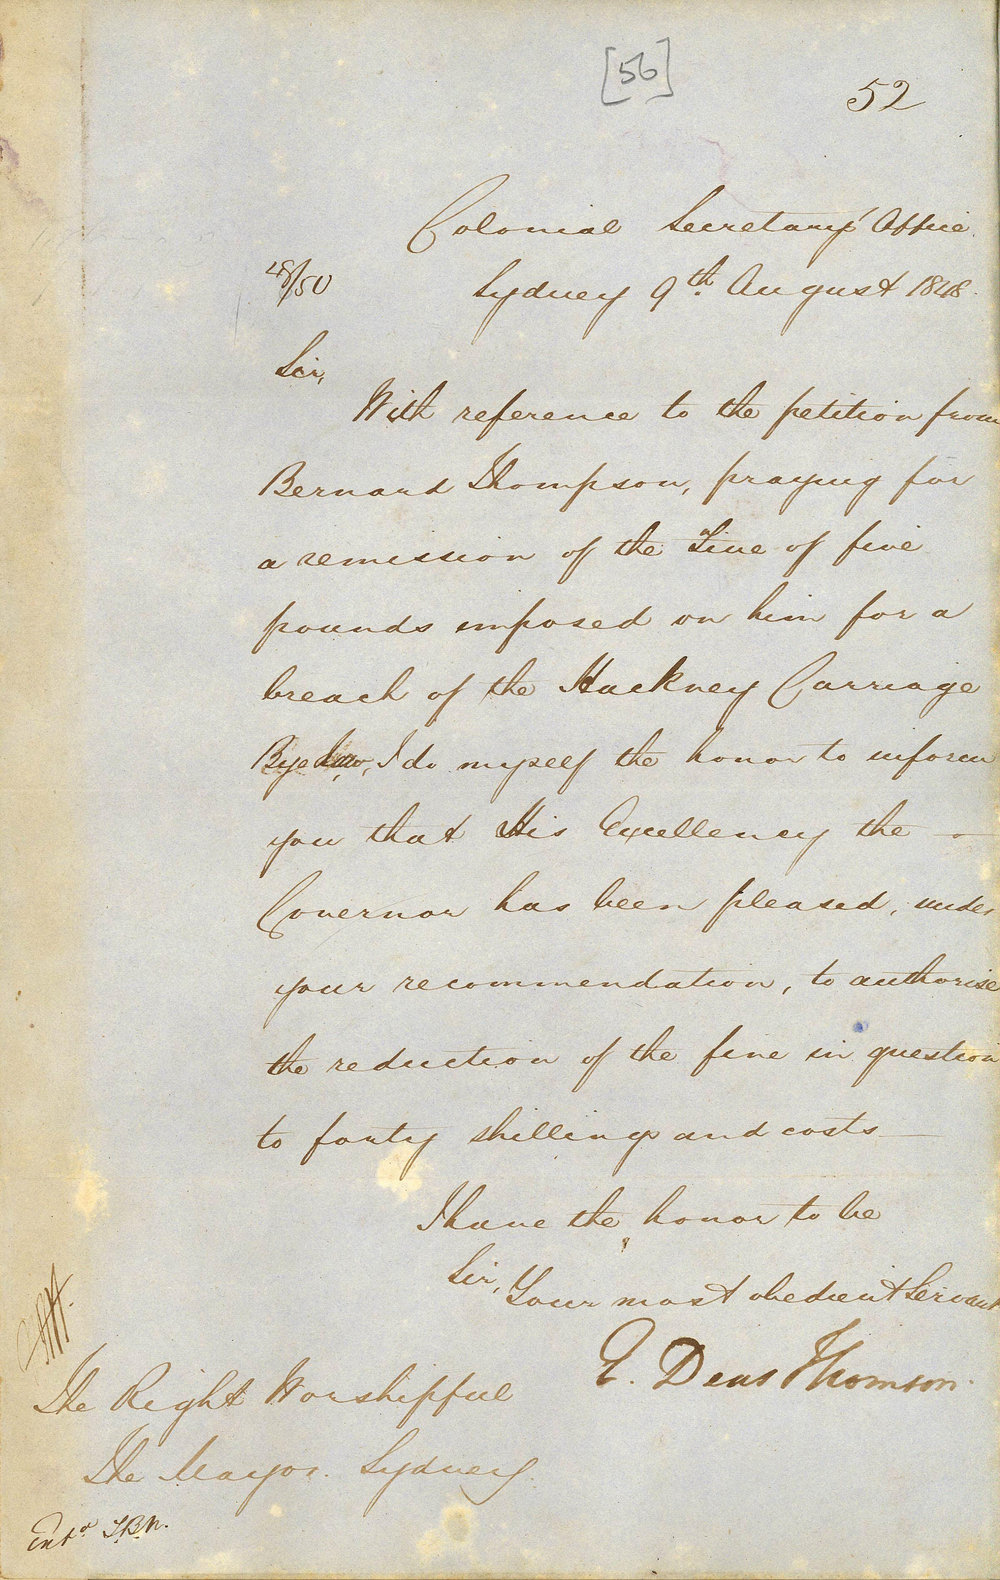 [56]
52
Colonial Secretary's Office
48/50
Sydney 9th August 1848.
Sir,
With reference to the petition from
Bernard Thompson, praying for
a remission of the Fine of five
pounds imposed on him for a
breach of the Hackney Carriage
Bye Law, I do myself the honor to inform
you that His Excellency the
Governor has been pleased, under
your recommendation, to authorise
the reduction of the fine in question
to forty shillings and costs
I have the honor to be
Sir,
Your most obedient Servant
E. Deas Thomson.
The Right Worshipful
The Mayor. Sydney.
Entd